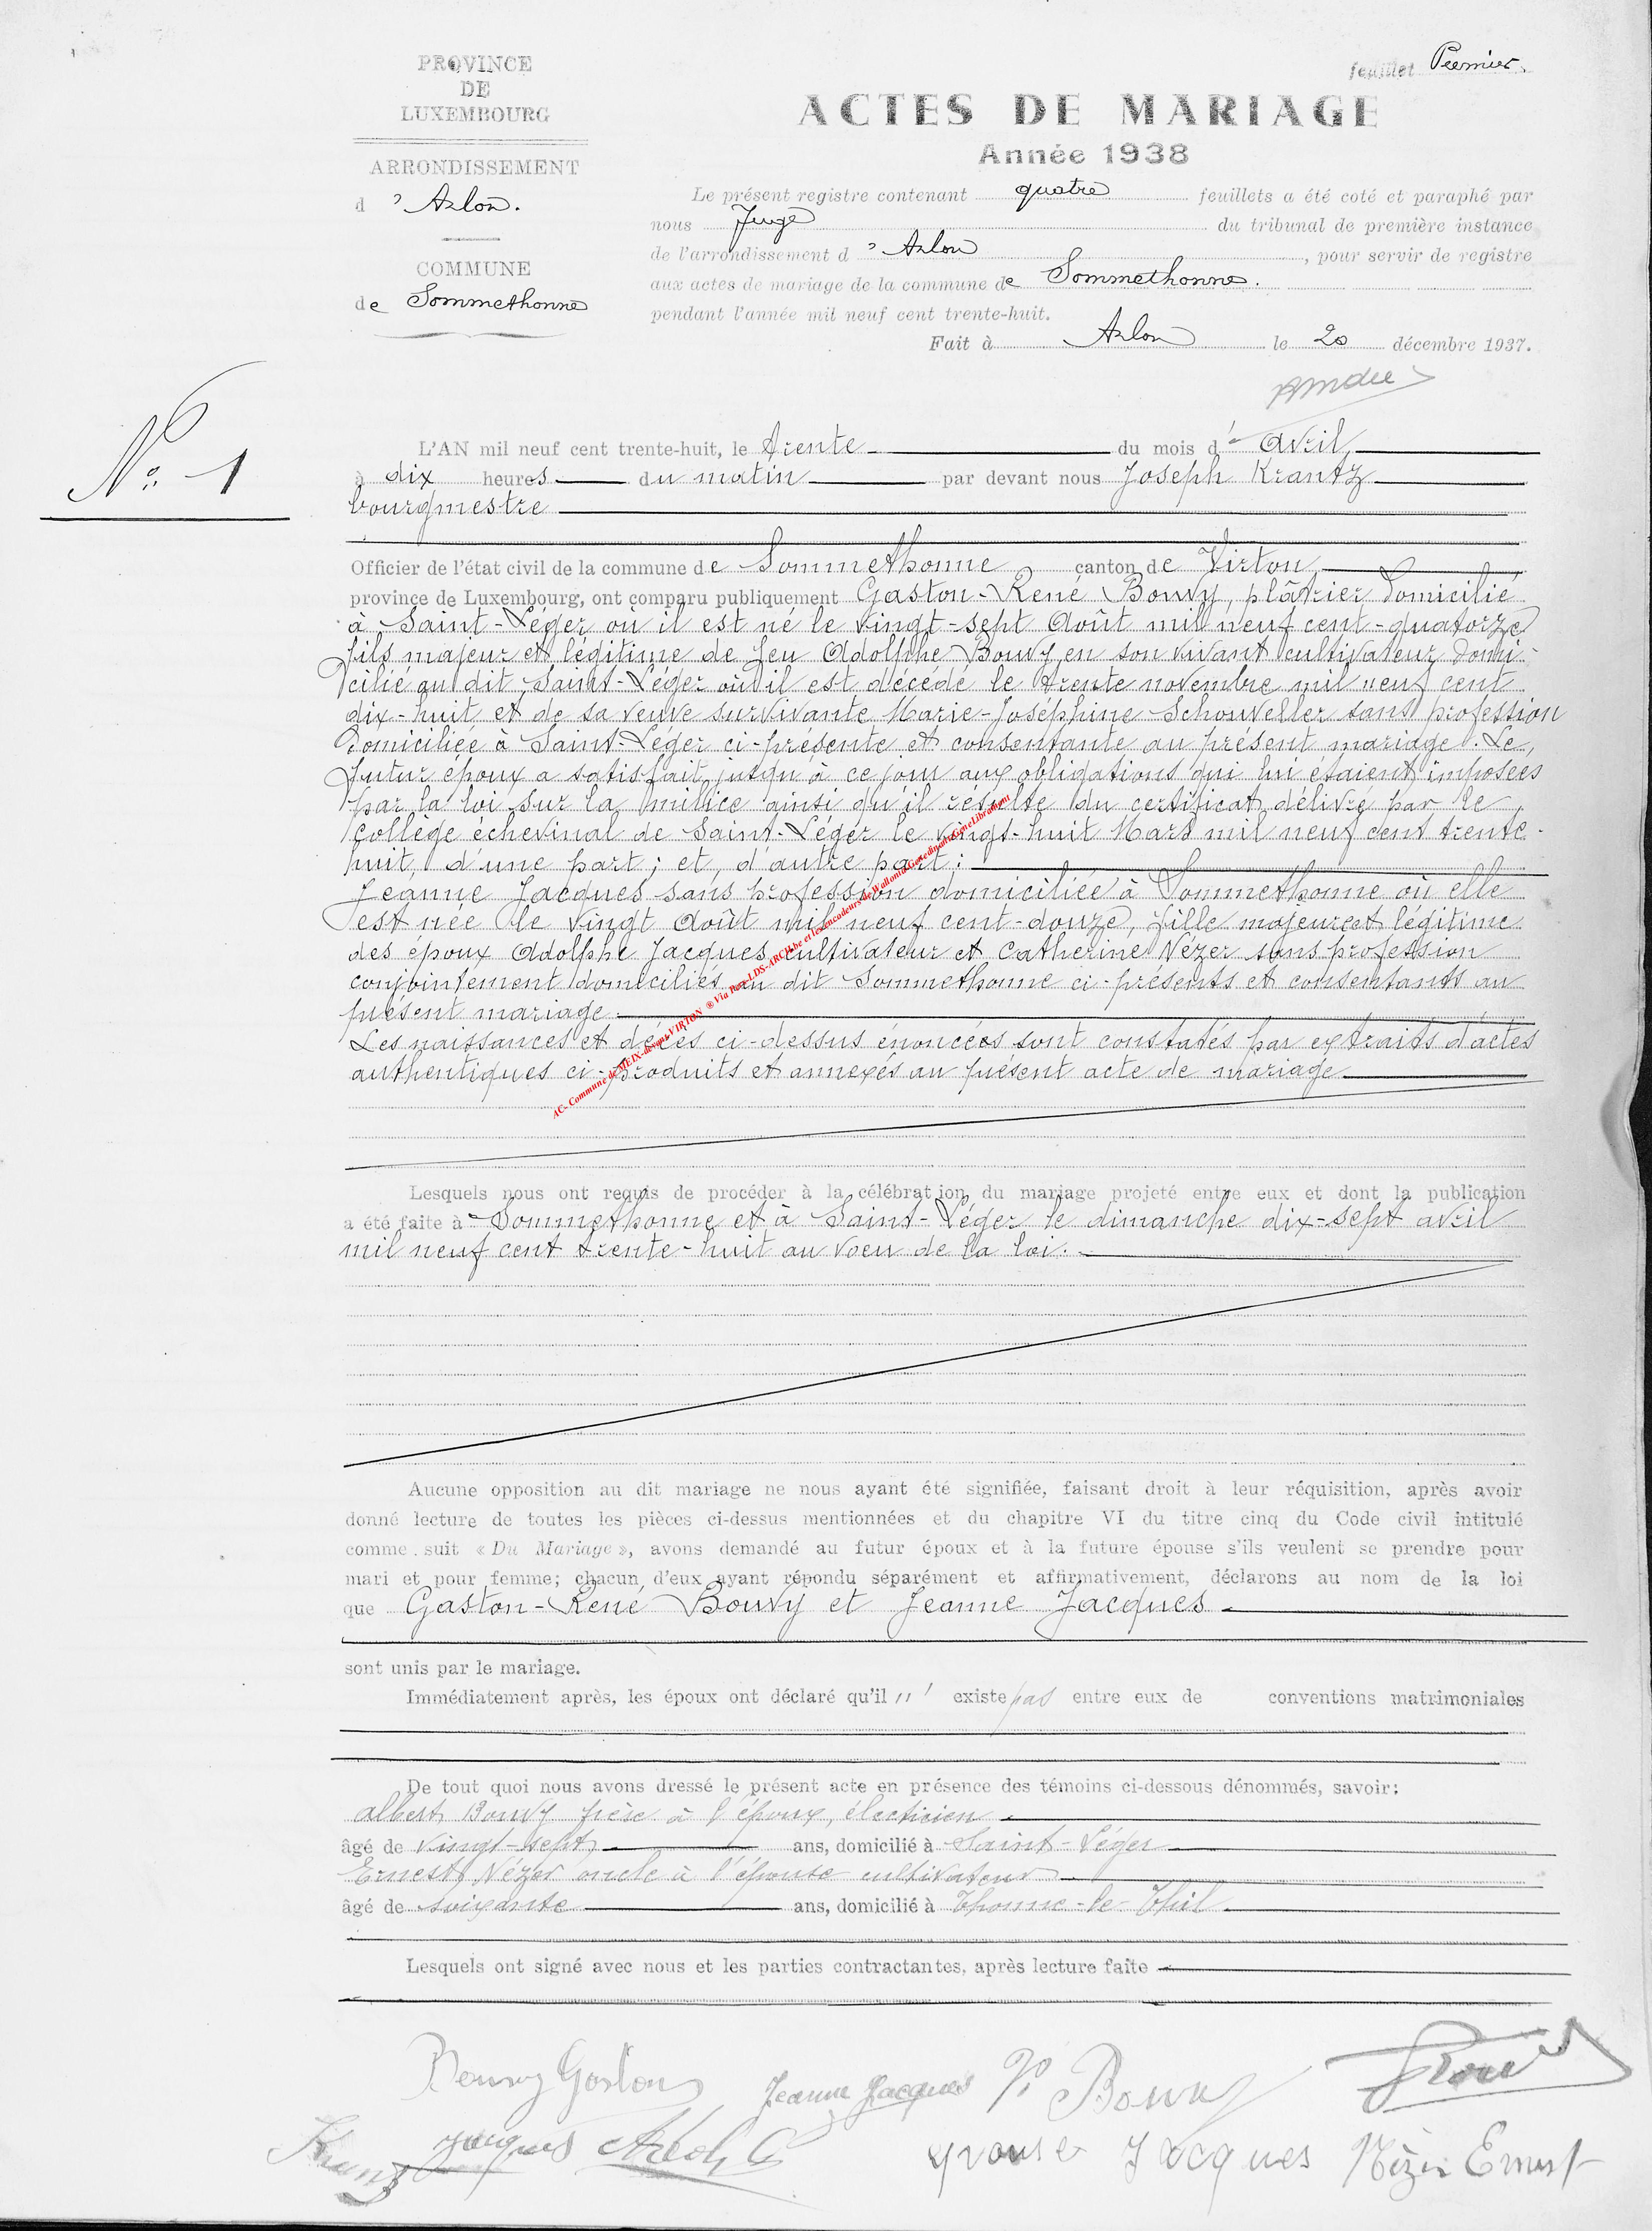 PROVINCE
DE
LUXEMBOURG
ARRONDISSEMENT
d 'Arlon.
COMMUNE
de Sommethonne
feuillet Premier.
ACTES DE MARIAGE
Année 1938
Le présent registre contenant quatre feuillets a été coté et paraphé par
nous Juge du tribunal de première instance
de l'arrondissement d 'Arlon, pour servir de registre
aux actes de mariage de la commune de Sommethonne.
pendant l'année mil neuf cent trente-huit.
Fait à Arlon le 20 décembre 1937.
No 1
L'AN mil neuf cent trente-huit, le trente du mois d' Avril,
à dix heures du matin par devant nous Joseph Krantz
bourgmestre
Officier de l'état civil de la commune de Sommethonne canton de Virton,
province de Luxembourg, ont comparu publiquement Gaston-René Bouvy, plâtrier domicilié
à Saint-Léger où il est né le vingt-sept Août mil neuf cent-quatorze
fils majeur et légitime de feu Adolphe Bouvy en son vivant cultivateur domi-
cilié au dit Saint-Léger où il est décédé le trente novembre mil neuf cent
dix-huit et de sa veuve survivante Marie-Joséphine Schouveller sans profession
domiciliée à Saint-Léger ci-présente et consentante au présent mariage. Le,
futur époux a satisfait jusqu'à ce jour aux obligations qui lui étaient imposées
par la loi sur la milice ainsi qu'il résulte du certificat délivré par le
collège échevinal de Saint-Léger le vingt-huit Mars mil neuf cent trente-
huit, d'une part; et, d'autre part:
Jeanne Jacques sans profession domiciliée à Sommethonne où elle
est née le vingt Août mil neuf cent-douze, fille majeure et légitime
des époux Adolphe Jacques cultivateur et Catherine Nézer sans profession
conjointement domiciliés au dit Sommethonne ci-présents et consentants au
présent mariage.
Les naissances et décès ci-dessus énoncées sont constatés par extraits d'actes
authentiques ci-produits et annexés au présent acte de mariage.
AC- Commune de MEIX-devant-VIRTON ® Via
Lesquels nous ont requis de procéder à la célébration du mariage projeté entre eux et dont la publication
a été faite à Sommethonne et à Saint-Léger le dimanche dix-sept avril
mil neuf cent trente-huit au voeu de la loi.
Aucune opposition au dit mariage ne nous ayant été signifiée, faisant droit à leur réquisition, après avoir
donné lecture de toutes les pièces ci-dessus mentionnées et du chapitre VI du titre cinq du Code civil intitulé
comme suit « Du Mariage », avons demandé au futur époux et à la future épouse s'ils veulent se prendre pour
mari et pour femme; chacun d'eux ayant répondu séparément et affirmativement, déclarons au nom de la loi
que Gaston-René Bouvy et Jeanne Jacques
sont unis par le mariage.
Immédiatement après, les époux ont déclaré qu'il n' existe pas entre eux de conventions matrimoniales
De tout quoi nous avons dressé le présent acte en présence des témoins ci-dessous dénommés, savoir:
Albert Bouvy frère à l'époux, électricien
âgé de vingt-sept ans, domicilié à Saint-Léger
Ernest Nézer oncle à l'épouse cultivateur
âgé de soixante ans, domicilié à Thonne-le-Thil
Lesquels ont signé avec nous et les parties contractantes, après lecture faite
Bouvy Gaston Jeanne Jacques Bouvy
Krantz Jacques Adolphe épouse Jacques Nézer Ernest